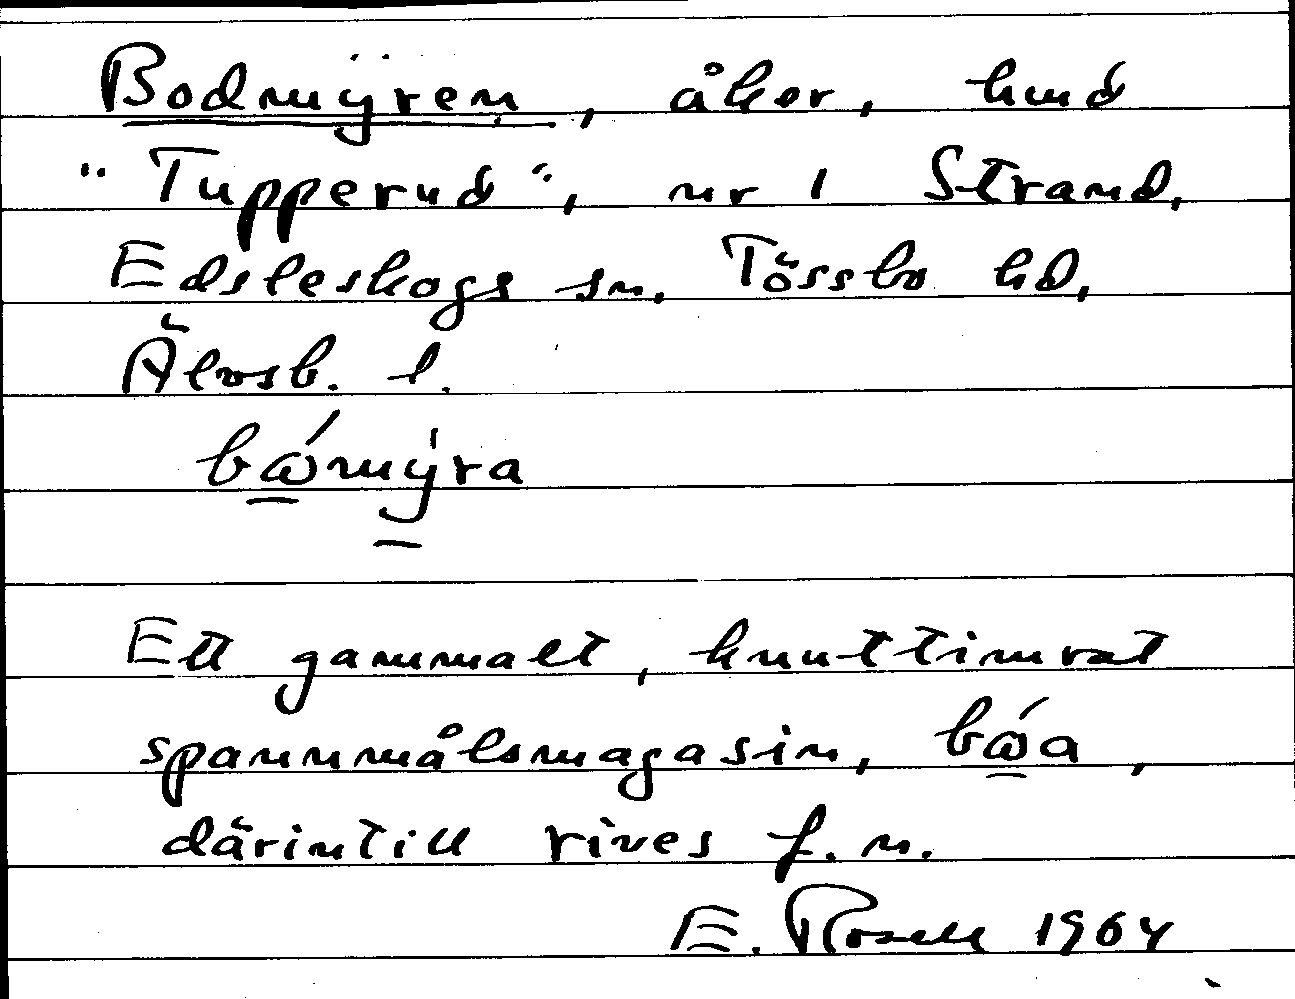 Bodmyren, åker, hmd
"Tupperud", nr 1 Strand,
Edsleskogs sn. Tössbo hd,
Älvsb. l.
bǻmýra
Ett gammalt, knuttimrat
spannmålsmagasin, bǻa,
därintill rives f. n.
E. Rosell 1964